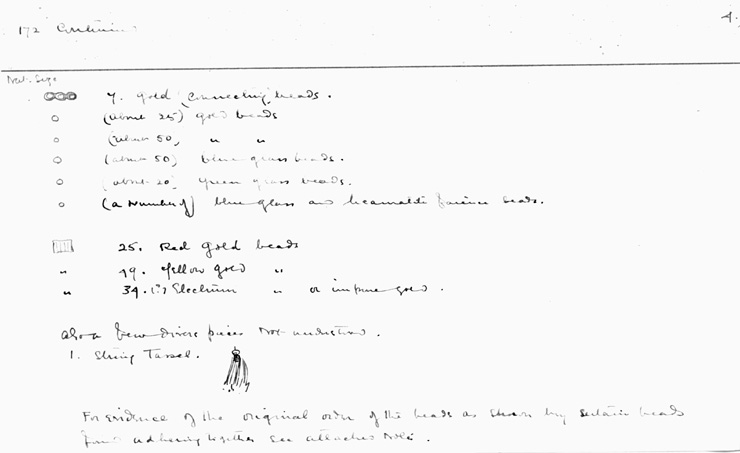 172 Continuing
4.
Nat. Size
7. gold (connecting) beads.
(about 25) gold beads
(about 50) " "
(about 50) blue glass beads.
(about 20) green glass beads.
(a number of) blue glass and haematite faience beads.
25. Red gold beads
" 49. Yellow gold "
" 34. (?) Electrum " or impure gold.
also a few divers pieces not understood.
1. String Tassel.
For evidence of the original order of the beads as shown by certain beads
found adhering together see attached note.